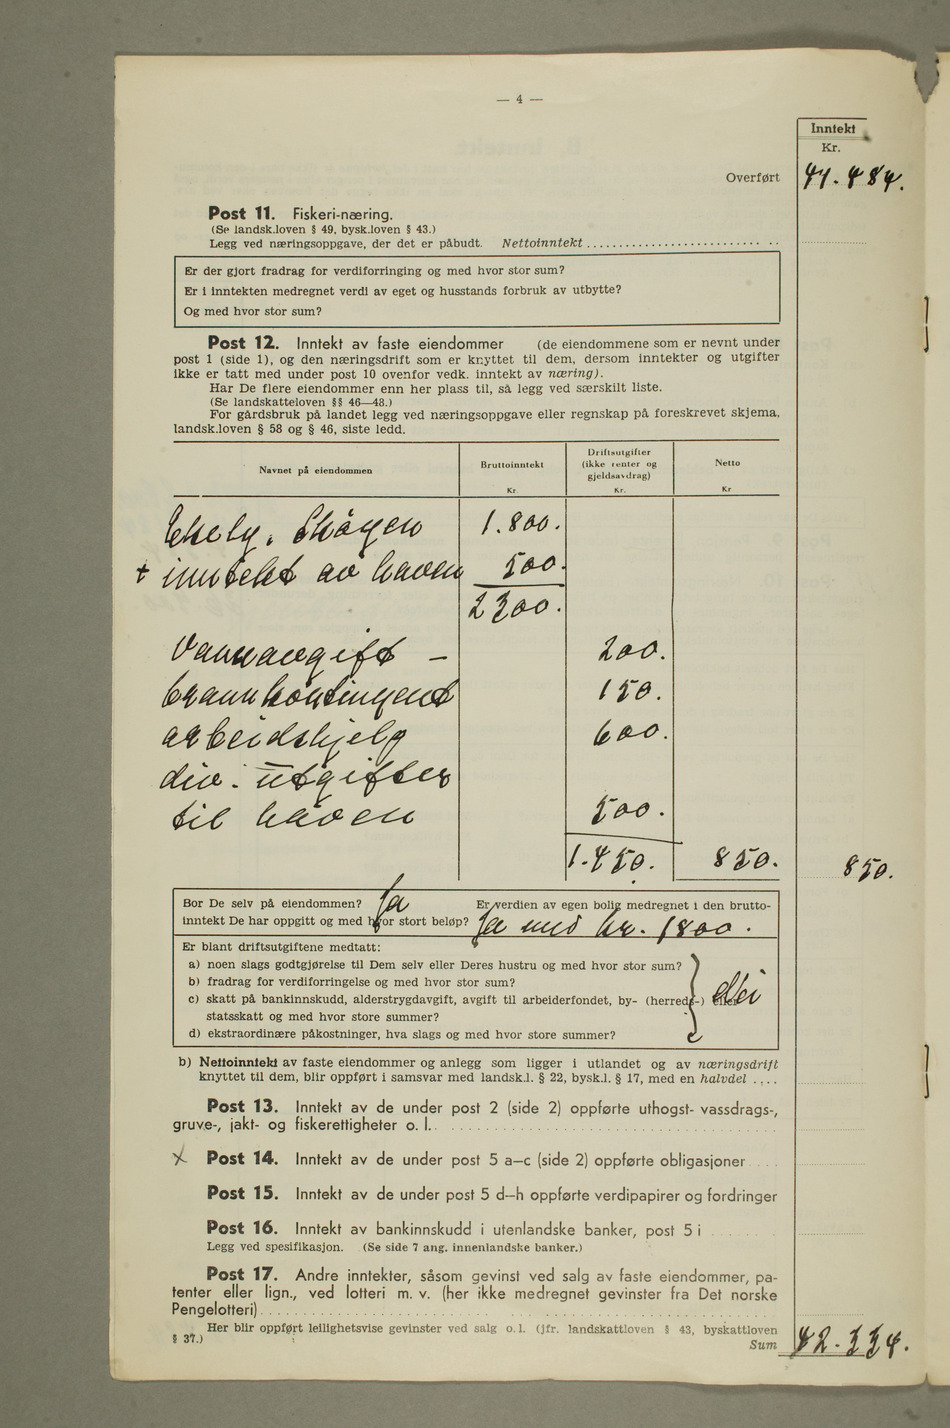 — 4 —
Inntekt
Kr.
Overført 41.484.
Post 11. Fiskeri-næring.
(Se landsk.loven § 49, bysk.loven § 43.)
Legg ved næringsoppgave, der det er påbudt. Nettoinntekt
Er der gjort fradrag for verdiforringing og med hvor stor sum?
Er i inntekten medregnet verdi av eget og husstands forbruk av utbytte?
Og med hvor stor sum?
Post 12. Inntekt av faste eiendommer (de eiendommene som er nevnt under
post 1 (side 1), og den næringsdrift som er knyttet til dem, dersom inntekter og utgifter
ikke er tatt med under post 10 ovenfor vedk. inntekt av næring).
Har De flere eiendommer enn her plass til, så legg ved særskilt liste.
(Se landskatteloven §§ 46—48.)
For gårdsbruk på landet legg ved næringsoppgave eller regnskap på foreskrevet skjema,
landsk.loven § 58 og § 46, siste ledd.
Navnet på eiendommen Bruttoinntekt Kr. Driftsutgifter (ikke renter og gjeldsavdrag) Kr. Netto Kr
Ekely. Skøyen 1.800.
+ inntekt av haven 500.
2300.
Vannavgift — 200.
brannkontingent 150.
arbeidshjelp 600.
div. utgifter
til haven 500.
1.450. 850. 850.
Bor De selv på eiendommen? Ja Er verdien av egen bolig medregnet i den brutto-
inntekt De har oppgitt og med hvor stort beløp? Ja med kr. 1800.
Er blant driftsutgiftene medtatt:
a) noen slags godtgjørelse til Dem selv eller Deres hustru og med hvor stor sum?
b) fradrag for verdiforringelse og med hvor stor sum?
c) skatt på bankinnskudd, alderstrygdavgift, avgift til arbeiderfondet, by- (herreds-) eller Nei
statsskatt og med hvor store summer?
d) ekstraordinære påkostninger, hva slags og med hvor store summer?
b) Nettoinntekt av faste eiendommer og anlegg som ligger i utlandet og av næringsdrift
knyttet til dem, blir oppført i samsvar med landsk.l. § 22, bysk.l. § 17, med en halvdel ....
Post 13. Inntekt av de under post 2 (side 2) oppførte uthogst- vassdrags-,
gruve-, jakt- og fiskerettigheter o. l.
x Post 14. Inntekt av de under post 5 a—c (side 2) oppførte obligasjoner
Post 15. Inntekt av de under post 5 d—h oppførte verdipapirer og fordringer
Post 16. Inntekt av bankinnskudd i utenlandske banker, post 5 i
Legg ved spesifikasjon. (Se side 7 ang. innenlandske banker.)
Post 17. Andre inntekter, såsom gevinst ved salg av faste eiendommer, pa-
tenter eller lign., ved lotteri m. v. (her ikke medregnet gevinster fra Det norske
Pengelotteri)
Her blir oppført leilighetsvise gevinster ved salg o. l. (jfr. landskattloven § 43, byskattloven
§ 37.)
Sum 42.334.